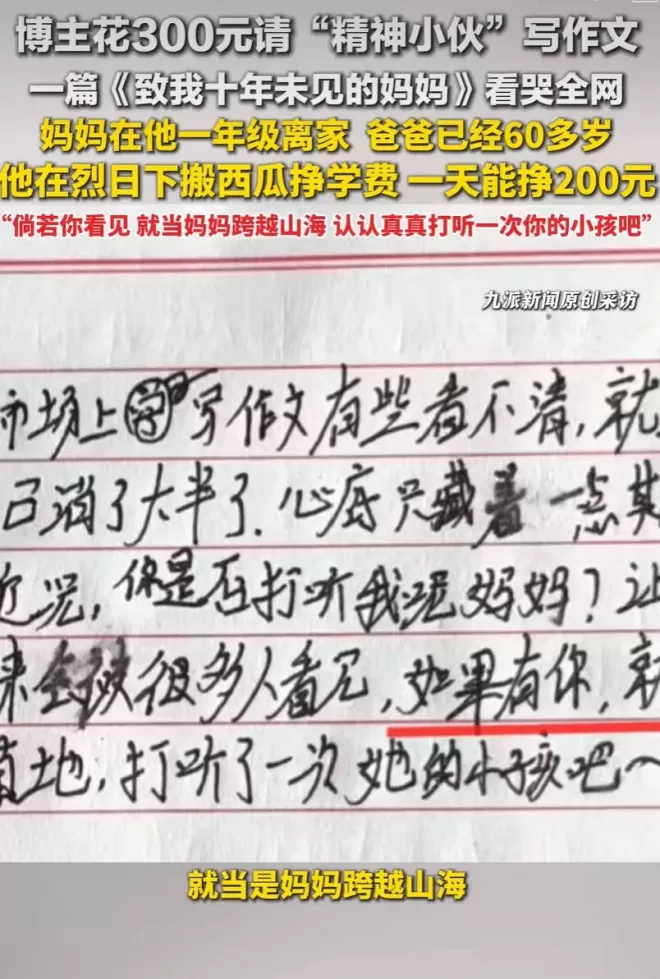 博主花300元请“精神小伙”写作文
一篇《致我十年未见的妈妈》看哭全网
妈妈在他一年级离家 爸爸已经60多岁
他在烈日下搬西瓜挣学费 一天能挣200元
“倘若你看见 就当妈妈跨越山海 认认真真打听一次你的小孩吧”
九派新闻原创采访
市场上 写作文有些看不清,就
已消了大半了.心底只藏着一点其
近况,你是否打听我呢妈妈?让
来会被很多人看见,如果有你,就
地,打听了一次她的小孩吧~
就当是妈妈跨越山海